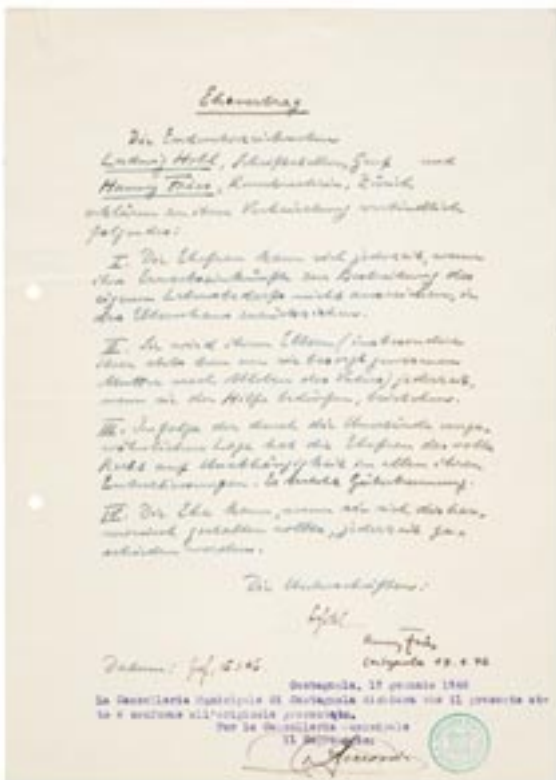 Ehevertrag
Die Endunterzeichneten
Ludwig Hohl, Schriftsteller, Genf und
Hanny Fries, Kunstmalerin, Zürich
erklären zu ihrer Verheiratung verbindlich
folgendes:
I. Die Ehefrau kann sich jederzeit, wenn
ihre Erwerbseinkünfte zur Bestreitung des
eigenen Lebensbedarfs nicht ausreichen, in
das Elternhaus zurückziehen.
II. Sie wird ihren Eltern (insbesondere
ihrer stets um sie besorgt gewesenen
Mutter nach Ableben des Vaters) jederzeit,
wenn sie der Hilfe bedürfen, beistehen.
III. Infolge der durch die Umstände
Lage hat die Ehefrau das volle
Recht auf Unabhängigkeit in allen ihren
Gütertrennung.
IV. Die Ehe kann, wenn sie sich
gestalten sollte, jederzeit ge-
schieden werden.
Die Unterschriften:
Hanny Fries
Datum: Genf,
Castagnola, gennaio 1946
La Cancelleria Municipale di Castagnola dichiara che il presente at-
to è conforme all'originale presentato.
Per la Cancelleria municipale
Il Segretario: